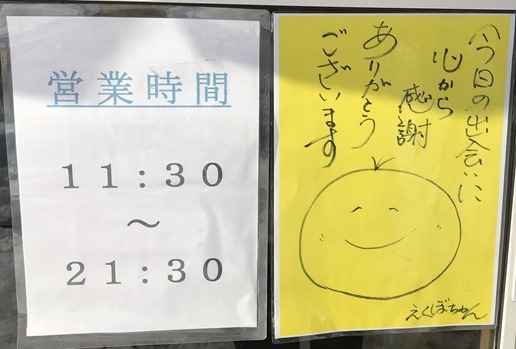 営業時間
11:30
～
21:30
今日の出会いに
心から
感謝
ありがとう
ございます
えくぼちゃん